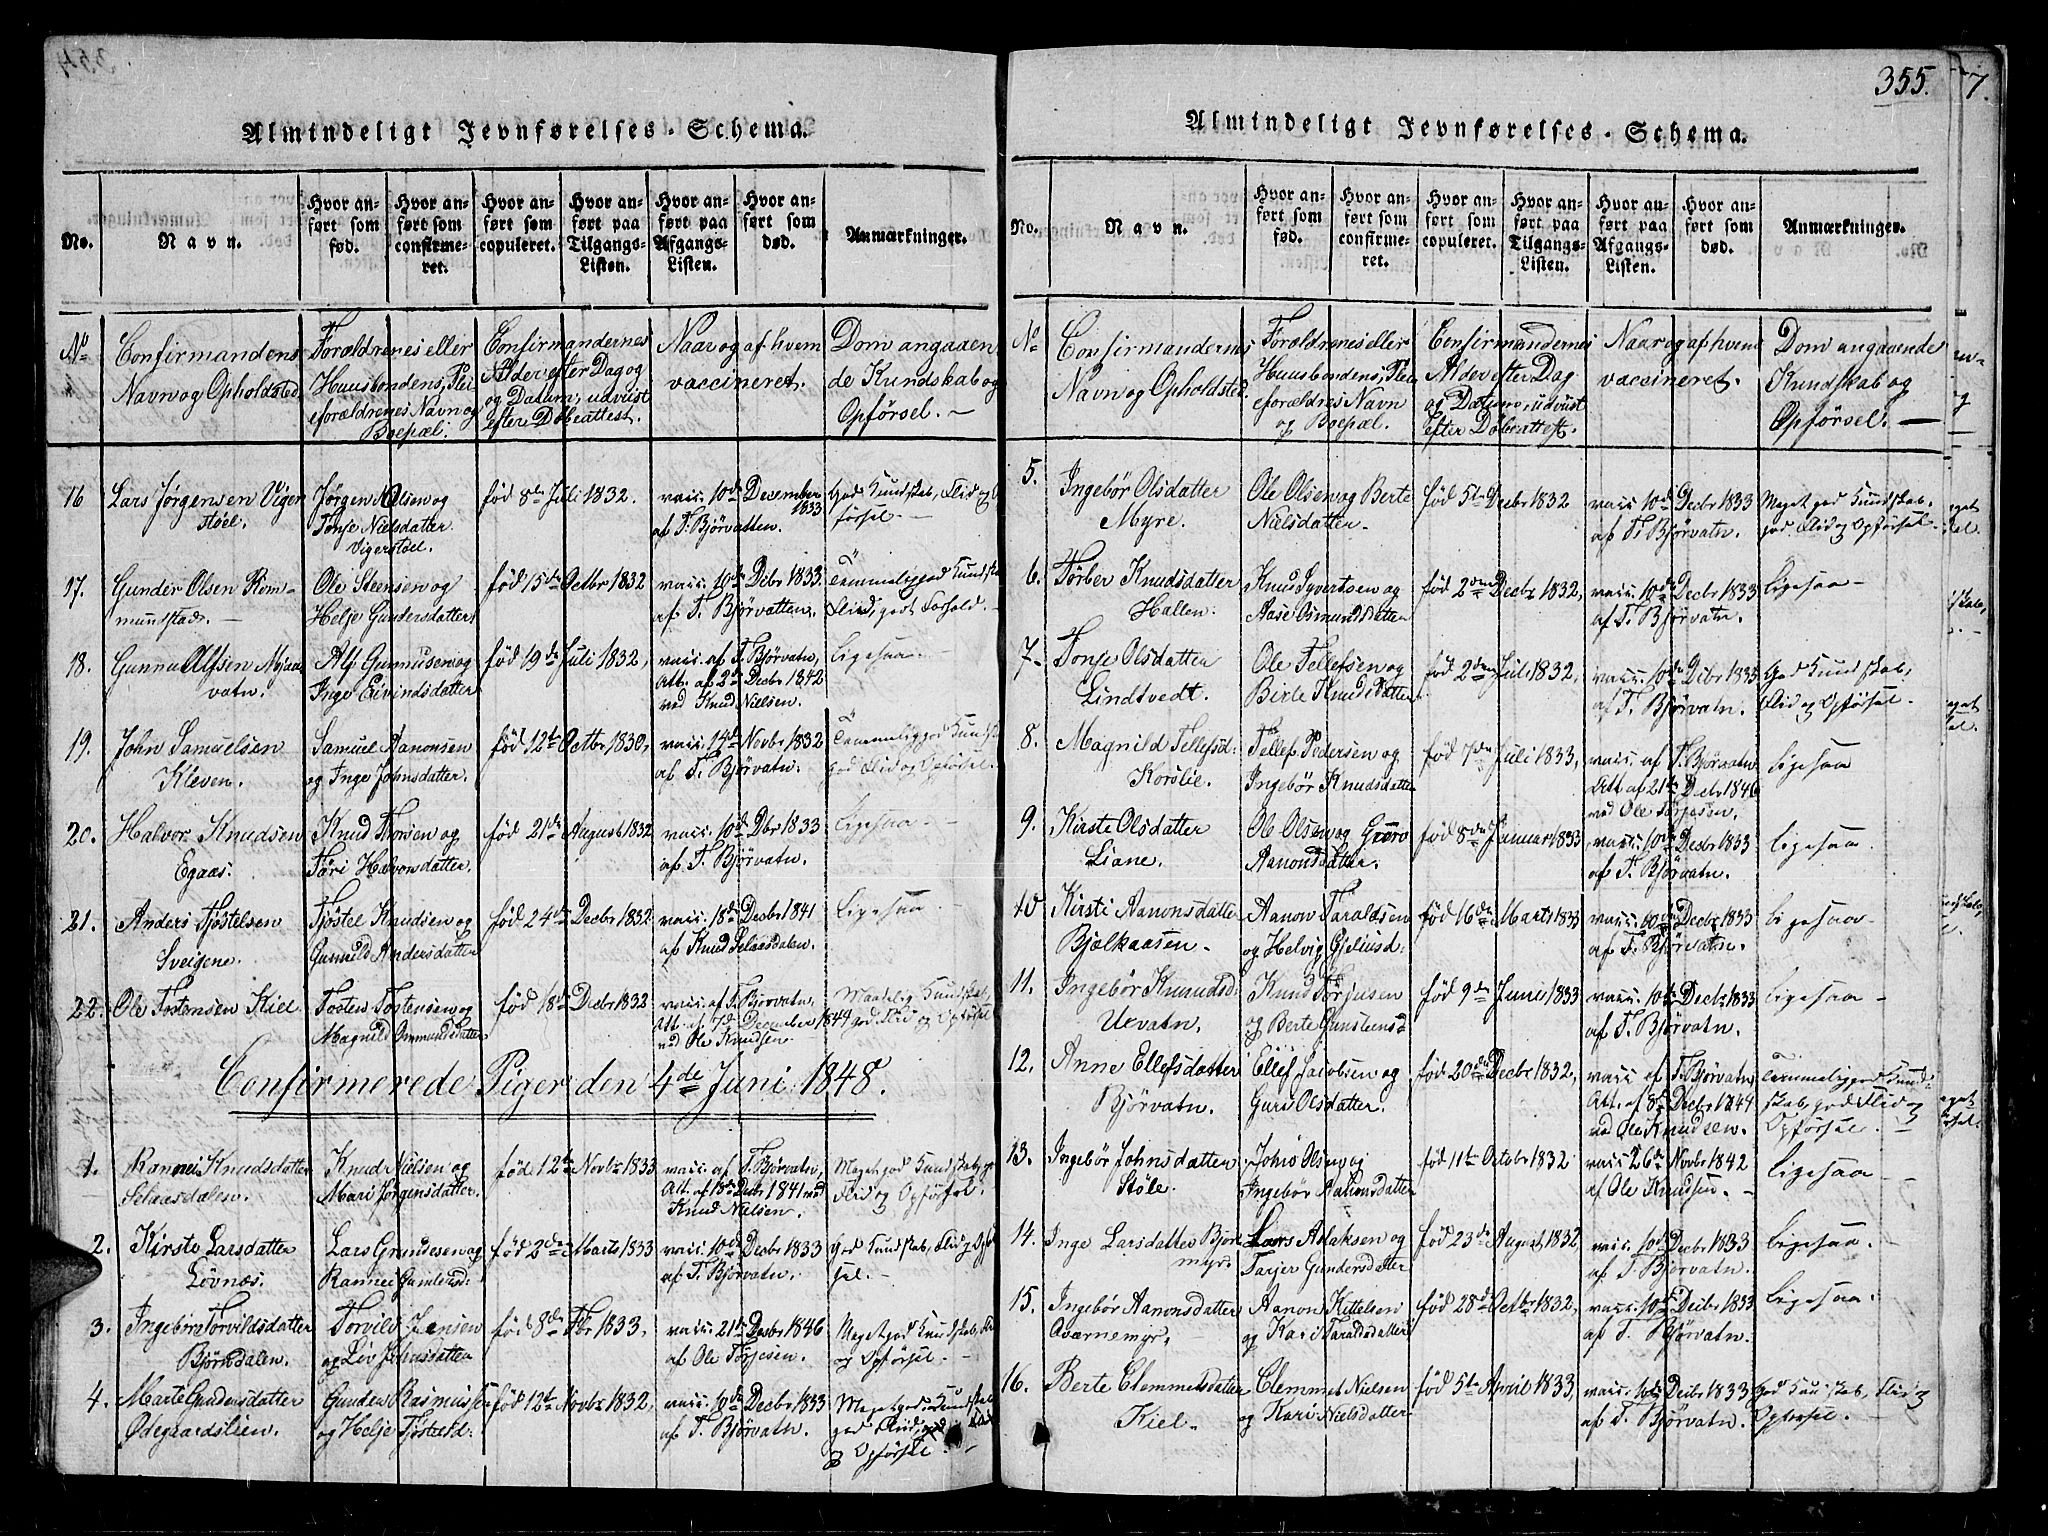 Almindeligt Jevnførelses-Schema.
No.
Navn.
Hvor an-
ført som
fød.
Hvor an-
ført som
confirme-
ret.
Hvor an-
ført som
copuleret.
Hvor an-
ført paa
Tilgangs-
Listen.
Hvor an-
ført paa
Afgangs-
Listen.
Hvor an-
ført som
død.
Anmærkninger.
No
Confirmandens
Navn og Opholdsted.
Forældrenes eller
Huusbondens, Plei
eforældrenes Navn og
Boepæl.
Confirmandernes
Alder efter Dag og
og Datum, udviist
efter Døbeattest.
Naar og af hvem
vaccineret.
Dom angaaen
de Kundskab og
Opførsel. —
16
Lars Jørgensen Viger
støel.
Jørgen Olsen og
Tønje Nielsdatter
Vigerstøel.
fød 8de Juli 1832.
vacc. 10de December
1833
af T. Bjørvatten.
God Kundskab, Flid og O
førsel. —
17.
Gunder Olsen Rom-
mundstad. —
Ole Steensen og
Helje Gundersdatter
fød 15de Octbr 1832
vacc. 10de Debr 1833.
af T. Bjørvatten.
Temmelig god Kundska
Flid, godt Forhold. —
18.
Gunnu Alfsen Mjaa
vatn.
Alf Gunnusen og
Inge Eivindsdatter
fød 19de Juli 1832,
vacc. af T. Bjørvatn,
Att. af 2de Decbr 1842
ved Knud Nielsen.
Ligesaa. —
19.
John Samuelsen
Kleven.
Samuel Aanonsen
og Inge Johnsdatter.
fød 12te Octbr 1830,
vacc. 14de Novbr 1832
af T. Bjørvatn.
Temmelig god Kundsk
god Flid og Opførsel.
20.
Halvor Knudsen
Egaas.
Knud Thorsen og
Tøri Halvorsdatter.
fød 21de August 1832
vacc. 10de Dbr 1833
af T. Bjørvatn.
Ligesaa. —
21.
Anders Tjøstelsen
Sveigene.
Tjøstel Knudsen og
Gunnild Andersdatter
fød 24de Decbr 1832
vacc. 18de Decbr 1841
af Knud Selaasdalen.
Ligesaa —
22.
Ole Tostensen Kiel
Tosten Tostensen og
Magnild Ommundsdatter
fød 18de Decbr 1832
vacc. af T. Bjørvatn,
Att. af 7de December 1844
ved Ole Knudsen.
Maadelig Kundskab,
god Flid og Opførsel
Confirmerede Piger den 4de Juni 1848.
1.
Rannei Knudsdatter
Selaasdalen.
Knud Nielsen og
Mari Jørgensdatter.
fød 12te Novbr 1833
vacc. af T. Bjørvatn,
Att. af 18de Decbr 1841 ved
Knud Nielsen.
Meget god Kundskab, go
Flid og Opførsel.
2.
Kirste Larsdatter
Løvnæs.
Lars Gundesen og
Rannei Gunlevsd:
fød 2den Marts 1833
vacc. 10de Decbr 1833
af T. Bjørvatn.
God Kundskab, Flid og Opfør
sel. —
3.
Ingebør Torvildsdatter
Bjørndalen.
Torvild Jensen
og Liv Johnsdatter
fød 8de Fbr 1833,
vacc. 21de Decbr 1846
af Ole Torjesen.
Meget god Kundskab, Fli
og Opførsel. —
4.
Marte Gundersdatter
Ødegaardslien.
Gunder Rasmusse
og Helje Tjøstelsd.
fød 12te Novbr 1832,
vacc. 10de Decbr 1833
af T. Bjørvatn.
Meget god Kundskab
god Flid, god
og Opførsel. —
355.
Almindeligt Jevnførelses-Schema.
No.
Navn.
Hvor an-
ført som
fød.
Hvor an-
ført som
confirme-
ret.
Hvor an-
ført som
copuleret.
Hvor an-
ført paa
Tilgangs-
Listen.
Hvor an-
ført paa
Afgangs-
Listen.
Hvor an-
ført som
død.
Anmærkninger.
No
Confirmandernes
Navn og Opholdsted.
Forældrenes eller
Huusbondens, Plei
eforældres Navn
og Boepæl.
Confirmandernes
Alder efter Dag
og Datum, udviist
efter Døbeattest.
Naar og af hvem
vaccineret.
Dom angaaende
Kundskab og
Opførsel. —
5.
Ingebør Olsdatter
Myre.
Ole Olsen og Berte
Nielsdatter.
fød 5te Decbr 1832
vacc 10de Decbr 1833
af T. Bjørvatn.
Meget god Kundskab,
god Flid og Opførsel. —
6.
Tørber Knudsdatter
Hallen.
Knud Syvertsen og
Aase Osmundsdatter
fød 2den Decbr 1832,
vacc. 10de Decbr 1833
af T. Bjørvatn.
Ligesaa —
7.
Tonje Olsdatter
Lindtvedt.
Ole Tellefsen og
Birte Knudsdatter
fød 2den Juli 1832,
vacc. 10de Debr 1833
af T. Bjørvatn.
God Kundskab,
Flid og Opførsel. —
8.
Magnild Tellefsd:
Korslie.
Tellef Pedersen og
Ingebør Knudsdatter
fød 7de Juli 1833,
vacc. af T. Bjørvatn
Att. af 21de Decbr 1846
ved Ole Torjessen.
Ligesaa
9.
Kirste Olsdatter
Liane.
Ole Olsen og Guro
Aanonsdatter.
fød 8de Januar 1833
vacc. 10de Decbr 1833
af T. Bjørvatn.
Ligesaa.
10
Kirsti Aanonsdatter
Bjelkaasen.
Aanon Taraldsen
og Helvig Gjeliusd:
fød 16de Marts 1833
vacc. 10de Decbr 1833
af T. Bjørvatn.
Ligesaa —
11.
Ingebør Knudsd:
Uxvatn.
Knud Torjusen
og Berte Gunstensd
fød 9de Juni 1833
vacc. 10de Decbr 1833
af T. Bjørvatn.
Ligesaa —
12.
Anne Ellefsdatter
Bjørvatn.
Ellef Jacobsen og
Guri Olsdatter.
fød 20de Decbr 1832,
vacc af T. Bjørvatn,
Att. af 8de Decbr 1844
ved Ole Knudsen.
Temmelig god Kund-
skab, god Flid og
Opførsel. —
13.
Ingebør Johnsdatter
Støle.
John Olsen og
Ingebør Aanonsdatter
fød 11te Octobr 1832
vacc 26de Novbr 1842
af Ole Knudsen. —
Ligesaa —
14.
Inge Larsdatter Bjøre
myr.
Lars Aslaksen og
Tarjer Gundersdatter
fød 23de August 1832
vacc. 10de Decbr 1833
af T. Bjørvatn.
Ligesaa. —
15.
Ingebør Aanonsdatter
Qvarnemyr.
Aanon Kittelsen
og Kari Taraldsdatter
fød 28de Octbr 1832,
vacc. 10de Decbr 1833
af T. Bjørvatn.
Ligesaa. —
16.
Berte Clemmetsdatter
Kiel.
Clemmet Nielsen
og Kari Nielsdatter
fød 5te April 1833,
vacc. 10de Decbr 1833
af T. Bjørvatn.
God Kundskab, Flid og
Opførsel. —
7.